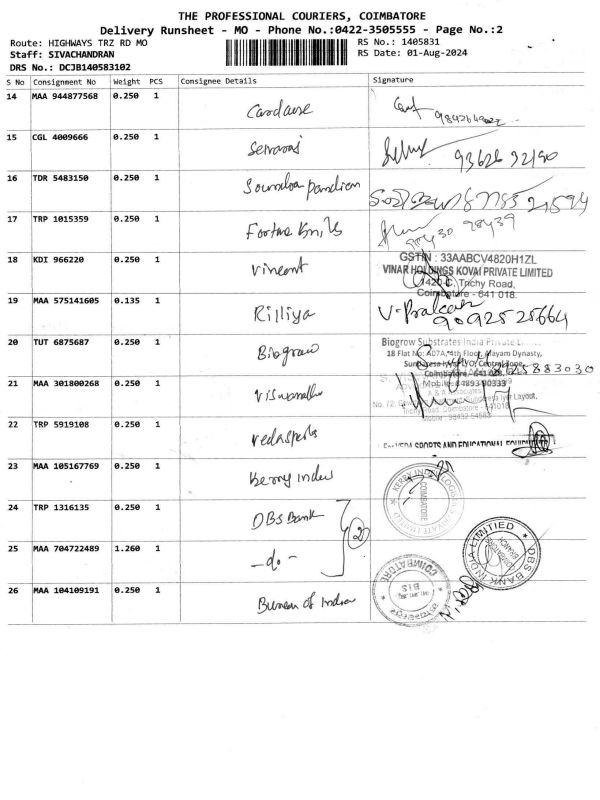 THE PROFESSIONAL COURIERS, COIMBATORE
Delivery Runsheet - MO - Phone No.:0422-3505555 - Page No.:2
Route: HIGHWAYS TRZ RD MO RS No.: 1405831
Staff: SIVACHANDRAN RS Date: 01-Aug-2024
DRS No.: DCJB140583102
S No Consignment No Weight PCS Consignee Details Signature
14 MAA 944877568 0.250 1
15 CGL 4009666 0.250 1 Selvaraj 9362632190
16 TDR 5483150 0.250 1 Soundara pandian
17 TRP 1015359 0.250 1 Fortune Knits
18 KDI 966220 0.250 1 Vincent GSTIN : 33AABCV4820H1ZL
VINAR HOLDINGS KOVAI PRIVATE LIMITED
Trichy Road,
Coimbatore - 641 018.
19 MAA 575141605 0.135 1 Rilliya 9092525664
20 TUT 6875687 0.250 1 Biograw Biogrow Substrates India Private
18 Flat No: A07A, 4th Floor, Mayam Dynasty,
Coimbatore
21 MAA 301800268 0.250 1 Viswanathan
22 TRP 5919108 0.250 1 Vedasports For VEDA SPORTS AND EDUCATIONAL EQUIPMENT
23 MAA 105167769 0.250 1 Kerry Indev COIMBATORE
24 TRP 1316135 0.250 1 DBS Bank 2
25 MAA 704722489 1.260 1 - do - DBS BANK INDIA LIMITED
COIMBATORE BRANCH
26 MAA 104109191 0.250 1 Bureau of India COIMBATORE
BIS